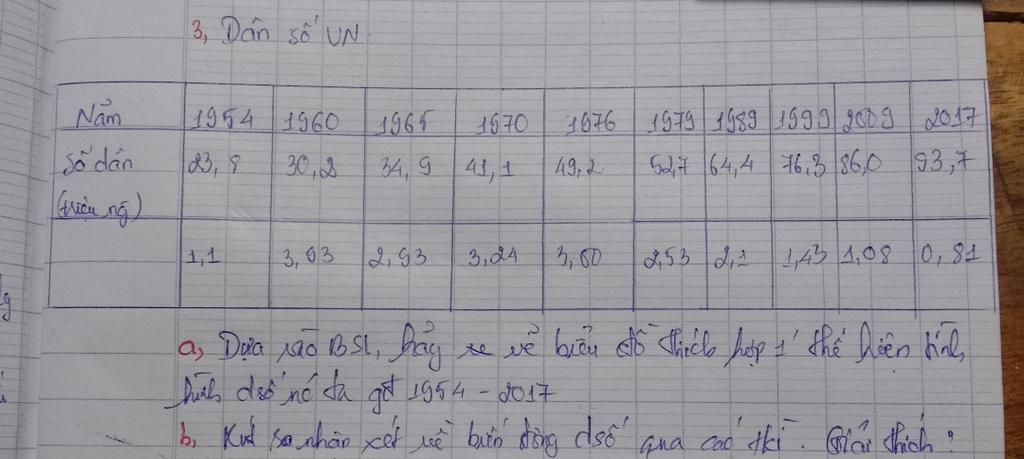 3, Dân số VN
Năm 1954 1960 1965 1970 1976 1979 1989 1999 2009 2017
Số dân 23,8 30,2 34,9 41,1 49,2 52,7 64,4 76,3 86,0 93,7
(triệu ng)
1,1 3,93 2,93 3,24 3,00 2,53 2,1 1,43 1,08 0,81
a, Dựa vào BSL, hãy vẽ biểu đồ thích hợp 1' thể hiện tình
hình dsố nc ta gđ 1954 - 2017
b, nhận xét về biến động dsố qua các thì. Giải thích?